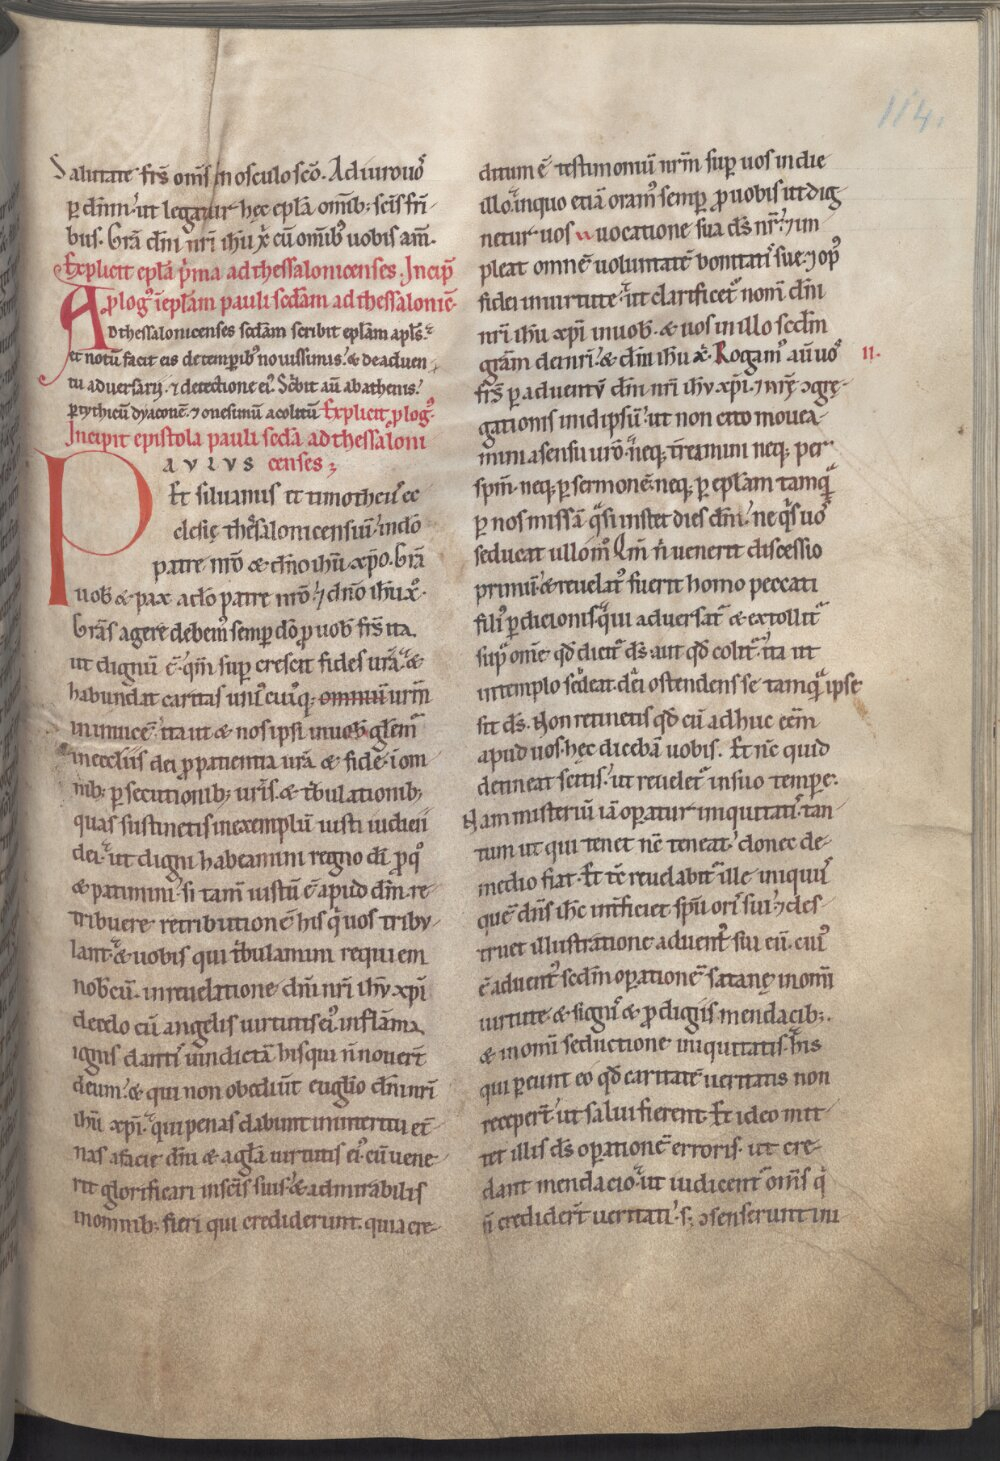 114.
Salutate frs̄ oms̄ in osculo scō. Adiuro uo᷒
ꝑ dn̄m ut legatur hęc epl̄a omib; scīs fr̄i
bus. Grā dn̄i nr̄i ih̄u x̄ cū omib᷒ uobis am̄.
Explicit epl̄a p̄ma ad thessalonicenses. Incip̄
Aplog᷒ ī epl̄am pauli scdām ad thessalonic̄
Ad thessalonicenses scdām scribit epl̄am apl̄s.
et notū facit eis de temporib᷒ nouissimis. & de aduen
tu aduersarij. ⁊ detectione ei᷒. Sc̄bit aū ab athenis.
ꝑ tythicū dyaconē. ⁊ onesimū acolitū Explicit ꝓlog᷒.
Incipit epistola pauli scdā ad thessaloni
censes;
PAVLVS
Et siluanus et timotheu᷒ ec
clesię thesalonicensiū in dō
patre nrō & dn̄o ih̄u xp̄o. Grā
uob̄ & pax a dō patre nrō ⁊ dn̄o ih̄u x̄.
Grās agere debem᷒ semꝑ dō ꝓ uob̄ frs̄ ita
ut dignū ē. qm̄ suꝑ crescit fides urā. &
habundat caritas uni᷒ cui᷒q; omnium urm̄
in inuicē. ita ut & nos ipsi in uob̄ glem᷒
in ecclīis dei ꝓ patientia urā & fide. ī om
nib; ꝑsecutionib; urīs. & tbulationib;
quas sustinetis in exemplū iusti iudicii
dei. ut digni habeamini regno dī ꝓ q᷒
& patimini. si tam̄ iustū ē apud dm̄. re
tribuere retributionē his qi uos tribu
lant. & uobis qui tbulamini requiem
nobcū. in reuelatione dn̄i nr̄i ih̄u xp̄i
de celo cū angelis uirtutis ei᷒ in flāma
ignis danti᷒ uindictā his qui n̄ nouert̄
deum. & qui non obediūt euglio dn̄i nr̄i
ih̄u xp̄i. qui penas dabunt in interitu et̄
nas a facie dn̄i & a glā uirtutis ei᷒. cū uene
rit glorificari in scīs suis. & admirabilis
in omnib; fieri qui crediderunt. quia cre
ditum ē testimoniū nrm̄ suꝑ uos in die
illo. in quo etiā oram᷒ semꝑ ꝓ uobis ut dig
netur uos uocatione sua ds̄ nr̄. ⁊ im
pleat omnē uoluntatē bonitatis sue. ⁊ op᷒
fidei in uirtute. ut clarificet᷒ nom̄ dn̄i
nr̄i ih̄u xp̄i in uob̄. & uos in illo scdm̄
grām dei nr̄i. & dn̄i ih̄u x̄. Rogam᷒ aū uo᷒
II.
frs̄ ꝑ aduentū dn̄i nr̄i ih̄u xp̄i. ⁊ nrę ꝯgrę
gationis in id ipsū. ut non cito mouea
mini a sensu urō. neq; terreamini neq; per
spm̄. neq; ꝑ sermonē. neq; ꝑ epl̄am tamq̄
ꝑ nos missā. qsi instet dies dn̄i. ne qs uo᷒
seducat ullo mō. Qm̄ n̄ uenerit discessio
primū. & reuelat᷒ fuerit homo peccati
fili᷒ ꝑdicionis. qui aduersat᷒ & extollit᷒
supᵃ omē qd̄ dicit᷒ ds̄. aut qd̄ colit᷒. ita ut
in templo sedeat. dei ostendens se tamquā ipse
sit ds̄. Non retinetis qd̄ cū adhuc eēm
apud uos. hęc dicebā uobis. Et nc̄ quid
detineat scitis. ut reuelet᷒ in suo tempore.
Nam misteriū iā oꝑatur iniquitatis. tan
tum ut qui tenet nc̄ teneat. donec de
medio fiat. Et tc̄ reuelabit᷒ ille iniquu᷒
quē dn̄s ih̄c int̄ficiet spū oris sui. ⁊ des
truet illustratione aduent᷒ sui eū. cui᷒
ē aduent᷒ scdm̄ oꝑationē satanę in om̄i
uirtute. & signis & ꝓdigijs mendacib;.
& in om̄i seductione iniquitatis. his
qui ꝑeunt eo qd̄ caritatē ueritatis non
recepert̄. ut salui fierent. Et ideo mit
tet illis ds̄ oꝑationē erroris. ut cre
dant mendacio. ut iudicent᷒ omīs qi
n̄ credidert̄ ueritati. s; ꝯsenserunt ini